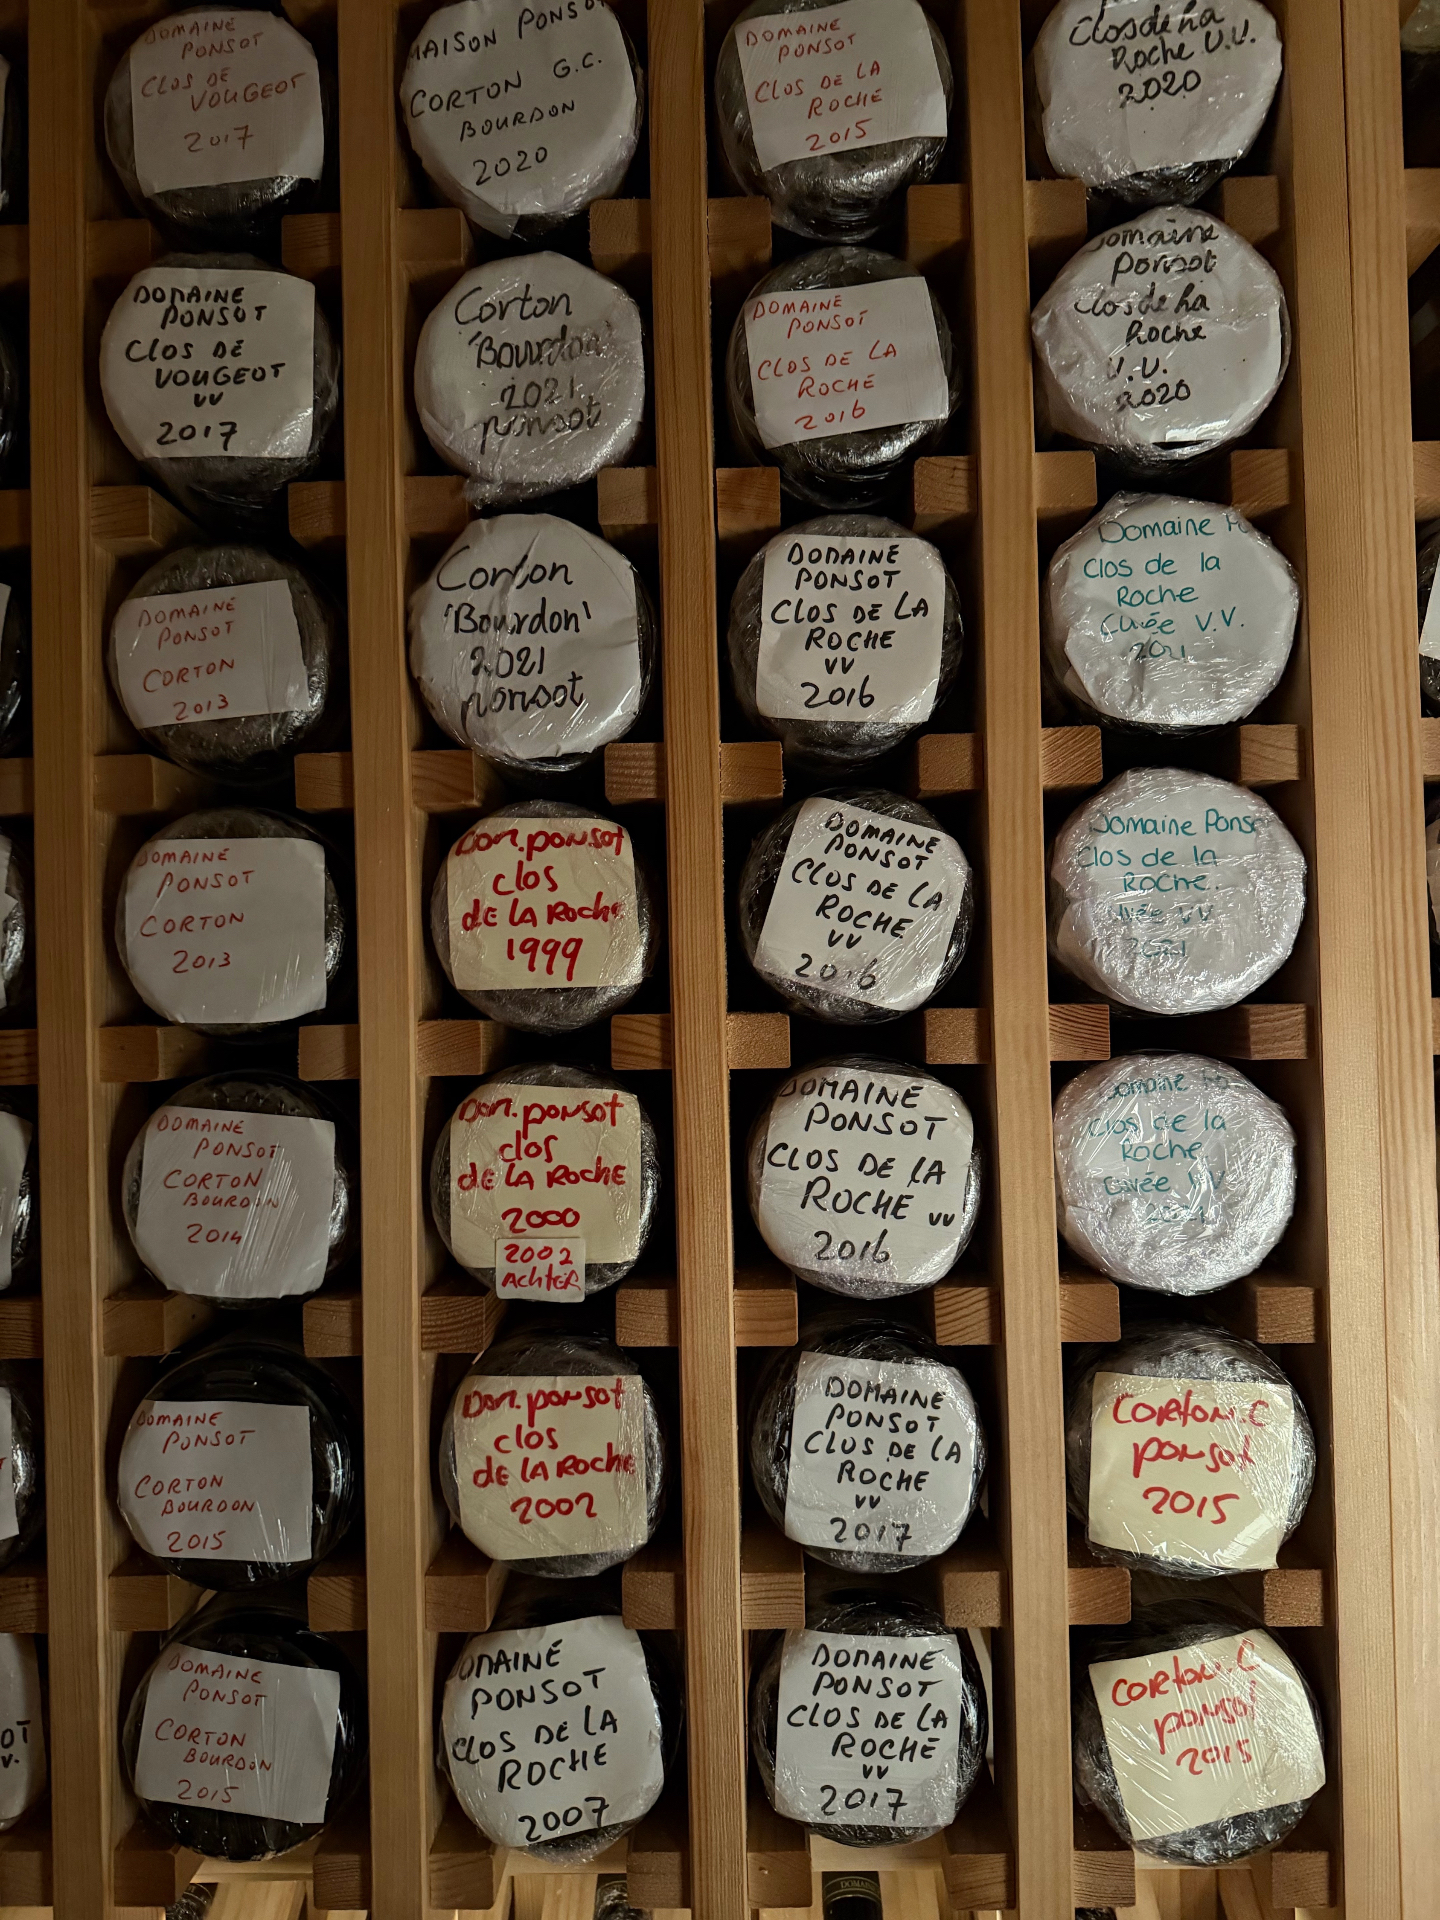 DOMAINE
PONSOT
CLOS DE
VOUGEOT
2017
MAISON PONSOT
CORTON G.C.
BOURDON
2020
DOMAINE
PONSOT
CLOS DE LA
ROCHE
2015
Clos de La
Roche V.V.
2020
DOMAINE
PONSOT
CLOS DE
VOUGEOT
VV
2017
Corton
'Bourdon'
2021
ponsot
DOMAINE
PONSOT
CLOS DE LA
ROCHE
2016
Domaine
Ponsot
Clos de La
Roche
V.V.
2020
DOMAINE
PONSOT
CORTON
2013
Corton
'Bourdon'
2021
ponsot
DOMAINE
PONSOT
CLOS DE LA
ROCHE
VV
2016
Domaine Po
Clos de la
Roche
Cuvée V.V.
2021
DOMAINE
PONSOT
CORTON
2013
Dom. ponsot
clos
de LA Roche
1999
DOMAINE
PONSOT
CLOS DE LA
ROCHE
VV
2016
Domaine Ponso
Clos de la
Roche
Cuvée VV
2021
DOMAINE
PONSOT
CORTON
BOURDON
2014
Dom. ponsot
clos
de LA Roche
2000
2002
Achter
DOMAINE
PONSOT
CLOS DE LA
ROCHE VV
2016
Domaine Po
Clos de la
Roche
Cuvée VV
2021
DOMAINE
PONSOT
CORTON
BOURDON
2015
Dom. ponsot
clos
de LA Roche
2002
DOMAINE
PONSOT
CLOS DE LA
ROCHE
VV
2017
Corton.C
ponsot
2015
DOMAINE
PONSOT
CORTON
BOURDON
2015
DOMAINE
PONSOT
CLOS DE LA
ROCHE
2007
DOMAINE
PONSOT
CLOS DE LA
ROCHE
VV
2017
Corton.C
ponsot
2015
OT
V.